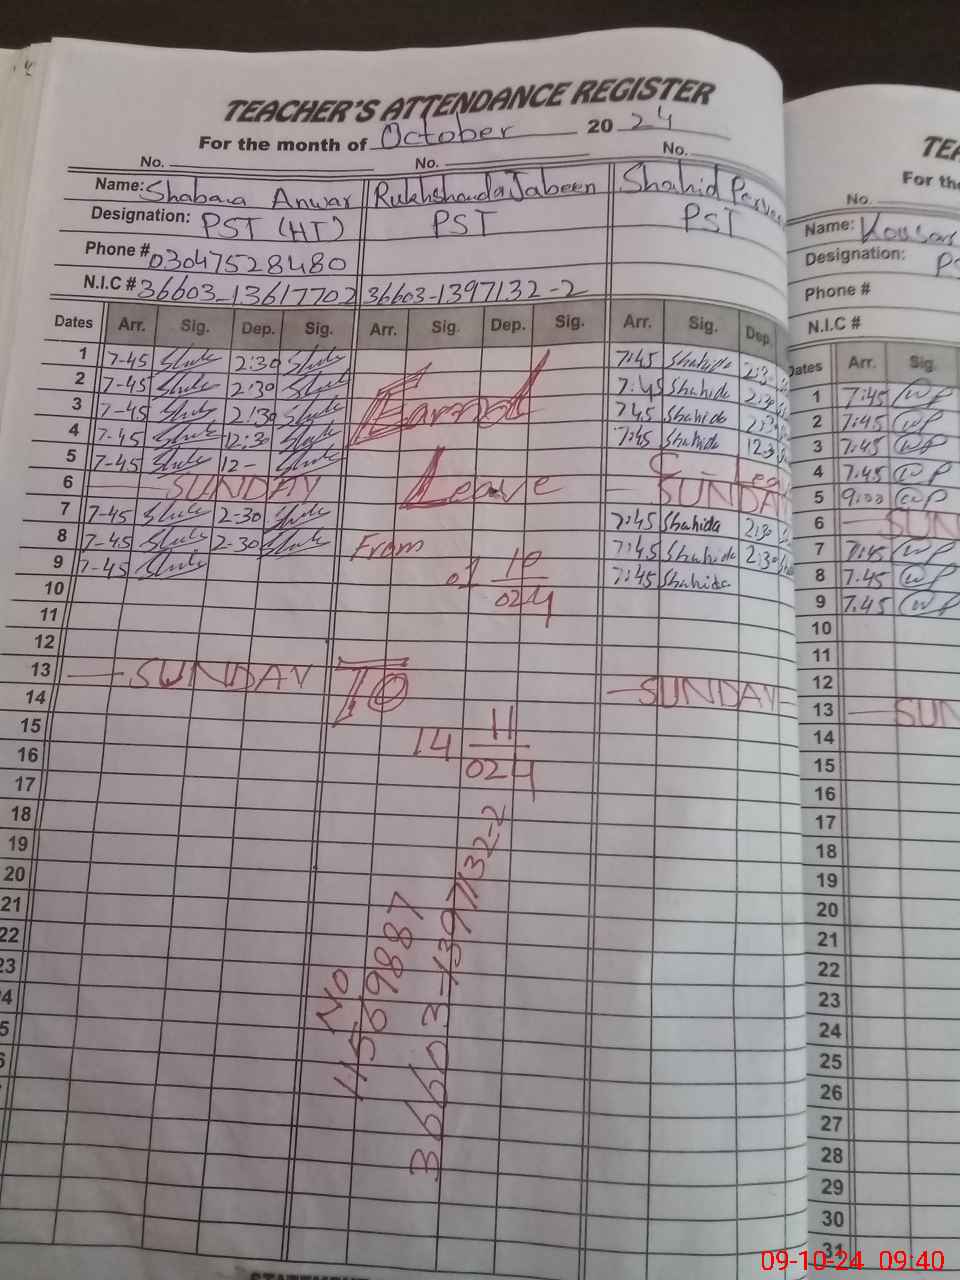 TEACHER'S ATTENDANCE REGISTER
For the month of October 2024
No. No. No.
Name: Shabana Anwar Rukhshanda Jabeen Shahid
Designation: PST (HT) PST PST
Phone # 03047528480
N.I.C # 36603-13617702 36603-1397132-2
Dates Arr. Sig. Dep. Sig. Arr. Sig. Dep. Sig. Arr. Sig. Dep.
1 7-45 2:30 7:45 Shahida
2 7-45 2:30 7:45 Shahida
3 7-45 2:30 7:45 Shahida
4 7-45 12:30 7:45 Shahida 12:3
5 7-45 12- C-Lea
6 SUNDAY SUNDAY
7 7-45 2-30 7:45 Shahida 2:30
8 7-45 2-30 7:45 Shahida 2:30
9 7-45 7:45 Shahida
Earned
Leave
From
01 10
024
10
11
12
13 SUNDAY SUNDAY
TO
14 11
024
14
15
16
17
18
19
20
21
22
23
NO
11569887
36603-1397132-2
TEA
For the
No.
Name: Kousar
Designation: PS
Phone #
N.I.C #
Dates Arr. Sig.
1 7:45
2 7:45
3 7:45
4 7:45
5 9:00
6 SUN
7 7:45
8 7:45
9 7:45
10
11
12
13 SUN
14
15
16
17
18
19
20
21
22
23
24
25
26
27
28
29
30
31
09-10-24 09:40